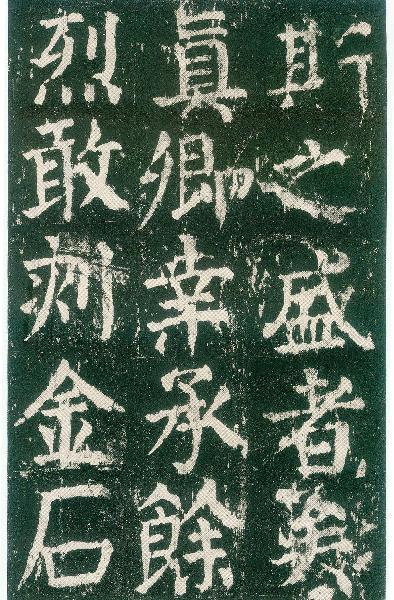 斯之盛者
真卿幸承餘
烈敢刻金石